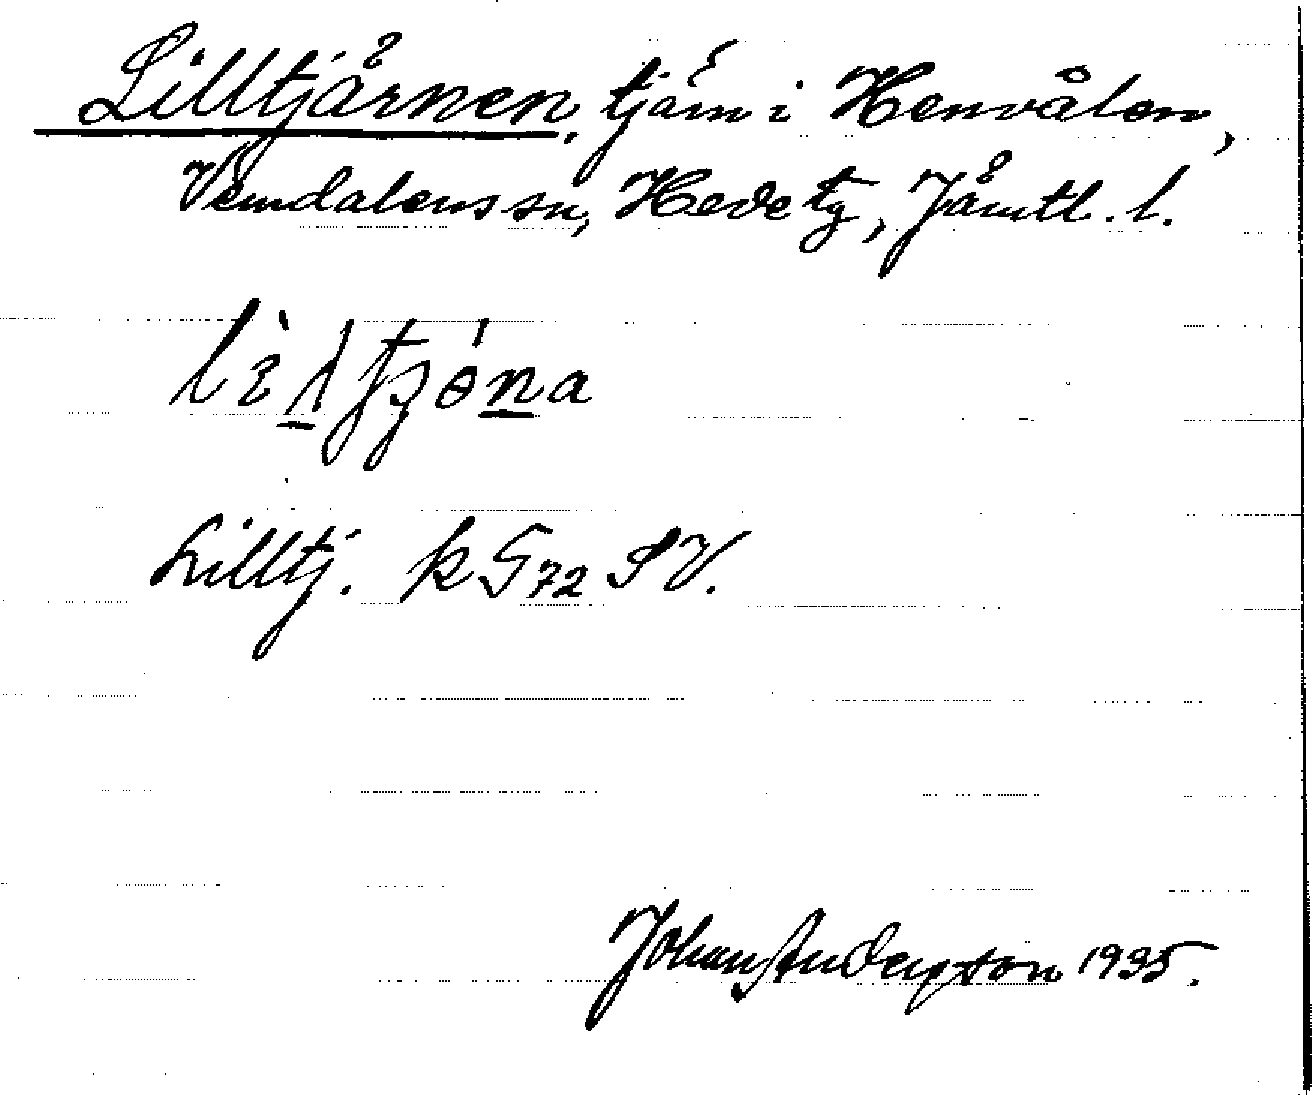 Lilltjärnen, tjärn i Henvålen,
Vemdalens sn, Hede tg, Jämtl. l.
Lilltj. k G72 SV.
Johan Anderson 1935.